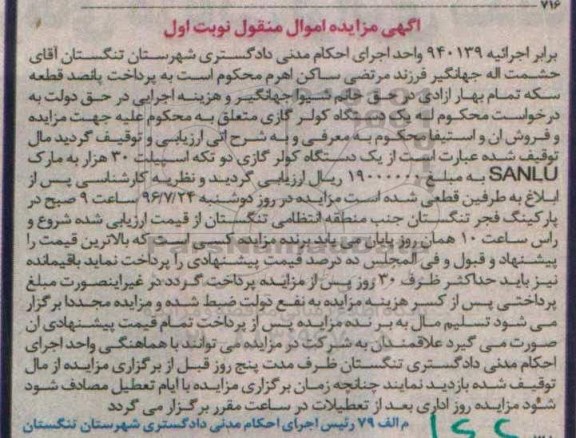 ۷۱۶
آگهی مزایده اموال منقول نوبت اول
برابر اجرائیه ۹۴۰۱۳۹ واحد اجرای احکام مدنی دادگستری شهرستان تنگستان آقای
حشمت اله جهانگیر فرزند مرتضی ساکن اهرم محکوم است به پرداخت پانصد قطعه
سکه تمام بهار ازادی در حق خانم شیوا جهانگیر و هزینه اجرایی در حق دولت به
درخواست محکوم له یک دستگاه کولر گازی متعلق به محکوم علیه جهت مزایده
و فروش ان و استیفا محکوم به معرفی و به شرح اتی ارزیابی و توقیف گردید مال
توقیف شده عبارت است از یک دستگاه کولر گازی دو تکه اسپیلت ۳۰ هزار به مارک
SANLU به مبلغ ۱۹۰۰۰۰۰۰ ریال ارزیابی گردید و نظریه کارشناسی پس از
ابلاغ به طرفین قطعی شده است مزایده در روز دوشنبه ۹۶/۷/۲۴ ساعت ۹ صبح در
پارکینگ فجر تنگستان جنب منطقه انتظامی تنگستان از قیمت ارزیابی شده شروع و
راس ساعت ۱۰ همان روز پایان می یابد برنده مزایده کسی است که بالاترین قیمت را
پیشنهاد و قبول و فی المجلس ده درصد قیمت پیشنهادی را پرداخت نماید باقیمانده
نیز باید حداکثر ظرف ۳۰ روز پس از مزایده پرداخت گردد در غیراینصورت مبلغ
پرداختی پس از کسر هزینه مزایده به نفع دولت ضبط شده و مزایده مجددا برگزار
می شود تسلیم مال به بر نده مزایده پس از پرداخت تمام قیمت پیشنهادی ان
صورت می گیرد علاقمندان به شرکت در مزایده می توانند با هماهنگی واحد اجرای
احکام مدنی دادگستری تنگستان ظرف مدت پنج روز قبل از برگزاری مزایده از مال
توقیف شده بازدید نمایند چنانچه زمان برگزاری مزایده با ایام تعطیل مصادف شود
شود مزایده روز اداری بعد از تعطیلات در ساعت مقرر برگزار می گردد
م الف ۷۹ رئیس اجرای احکام مدنی دادگستری شهرستان تنگستان